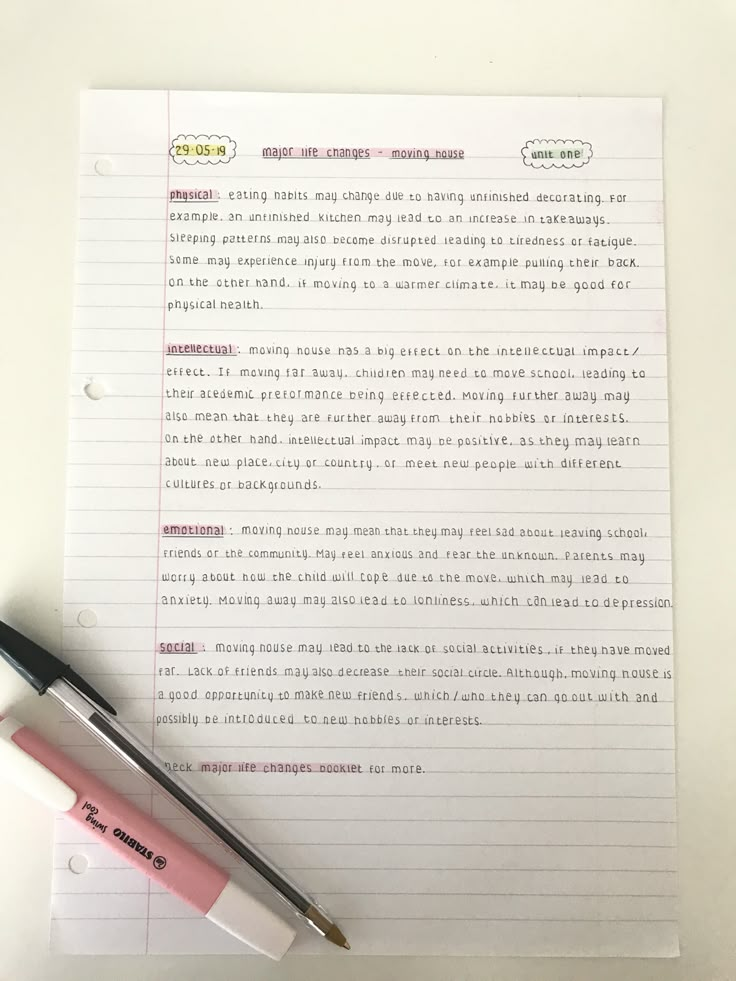 29·05·19 major life changes - moving house unit one
physical : eating habits may change due to having unfinished decorating. For
example, an unfinished kitchen may lead to an increase in takeaways.
Sleeping patterns may also become disrupted leading to tiredness or fatigue.
Some may experience injury from the move, for example pulling their back.
On the other hand, if moving to a warmer climate, it may be good for
physical health.
intellectual : moving house has a big effect on the intellectual impact/
effect. If moving far away, children may need to move school, leading to
their acedemic preformance being effected. Moving further away may
also mean that they are further away from their hobbies or interests.
On the other hand, intellectual impact may be positive, as they may learn
about new place, city or country, or meet new people with different
cultures or backgrounds.
emotional : moving house may mean that they may feel sad about leaving school,
friends or the community. May feel anxious and fear the unknown. Parents may
worry about how the child will cope due to the move, which may lead to
anxiety. Moving away may also lead to lonliness, which can lead to depression.
social : moving house may lead to the lack of social activities, if they have moved
far. Lack of friends may also decrease their social circle. Although, moving house is
a good opportunity to make new friends, which/who they can go out with and
possibly be introduced to new hobbies or interests.
major life changes booklet for more.
STABILO
swing cool